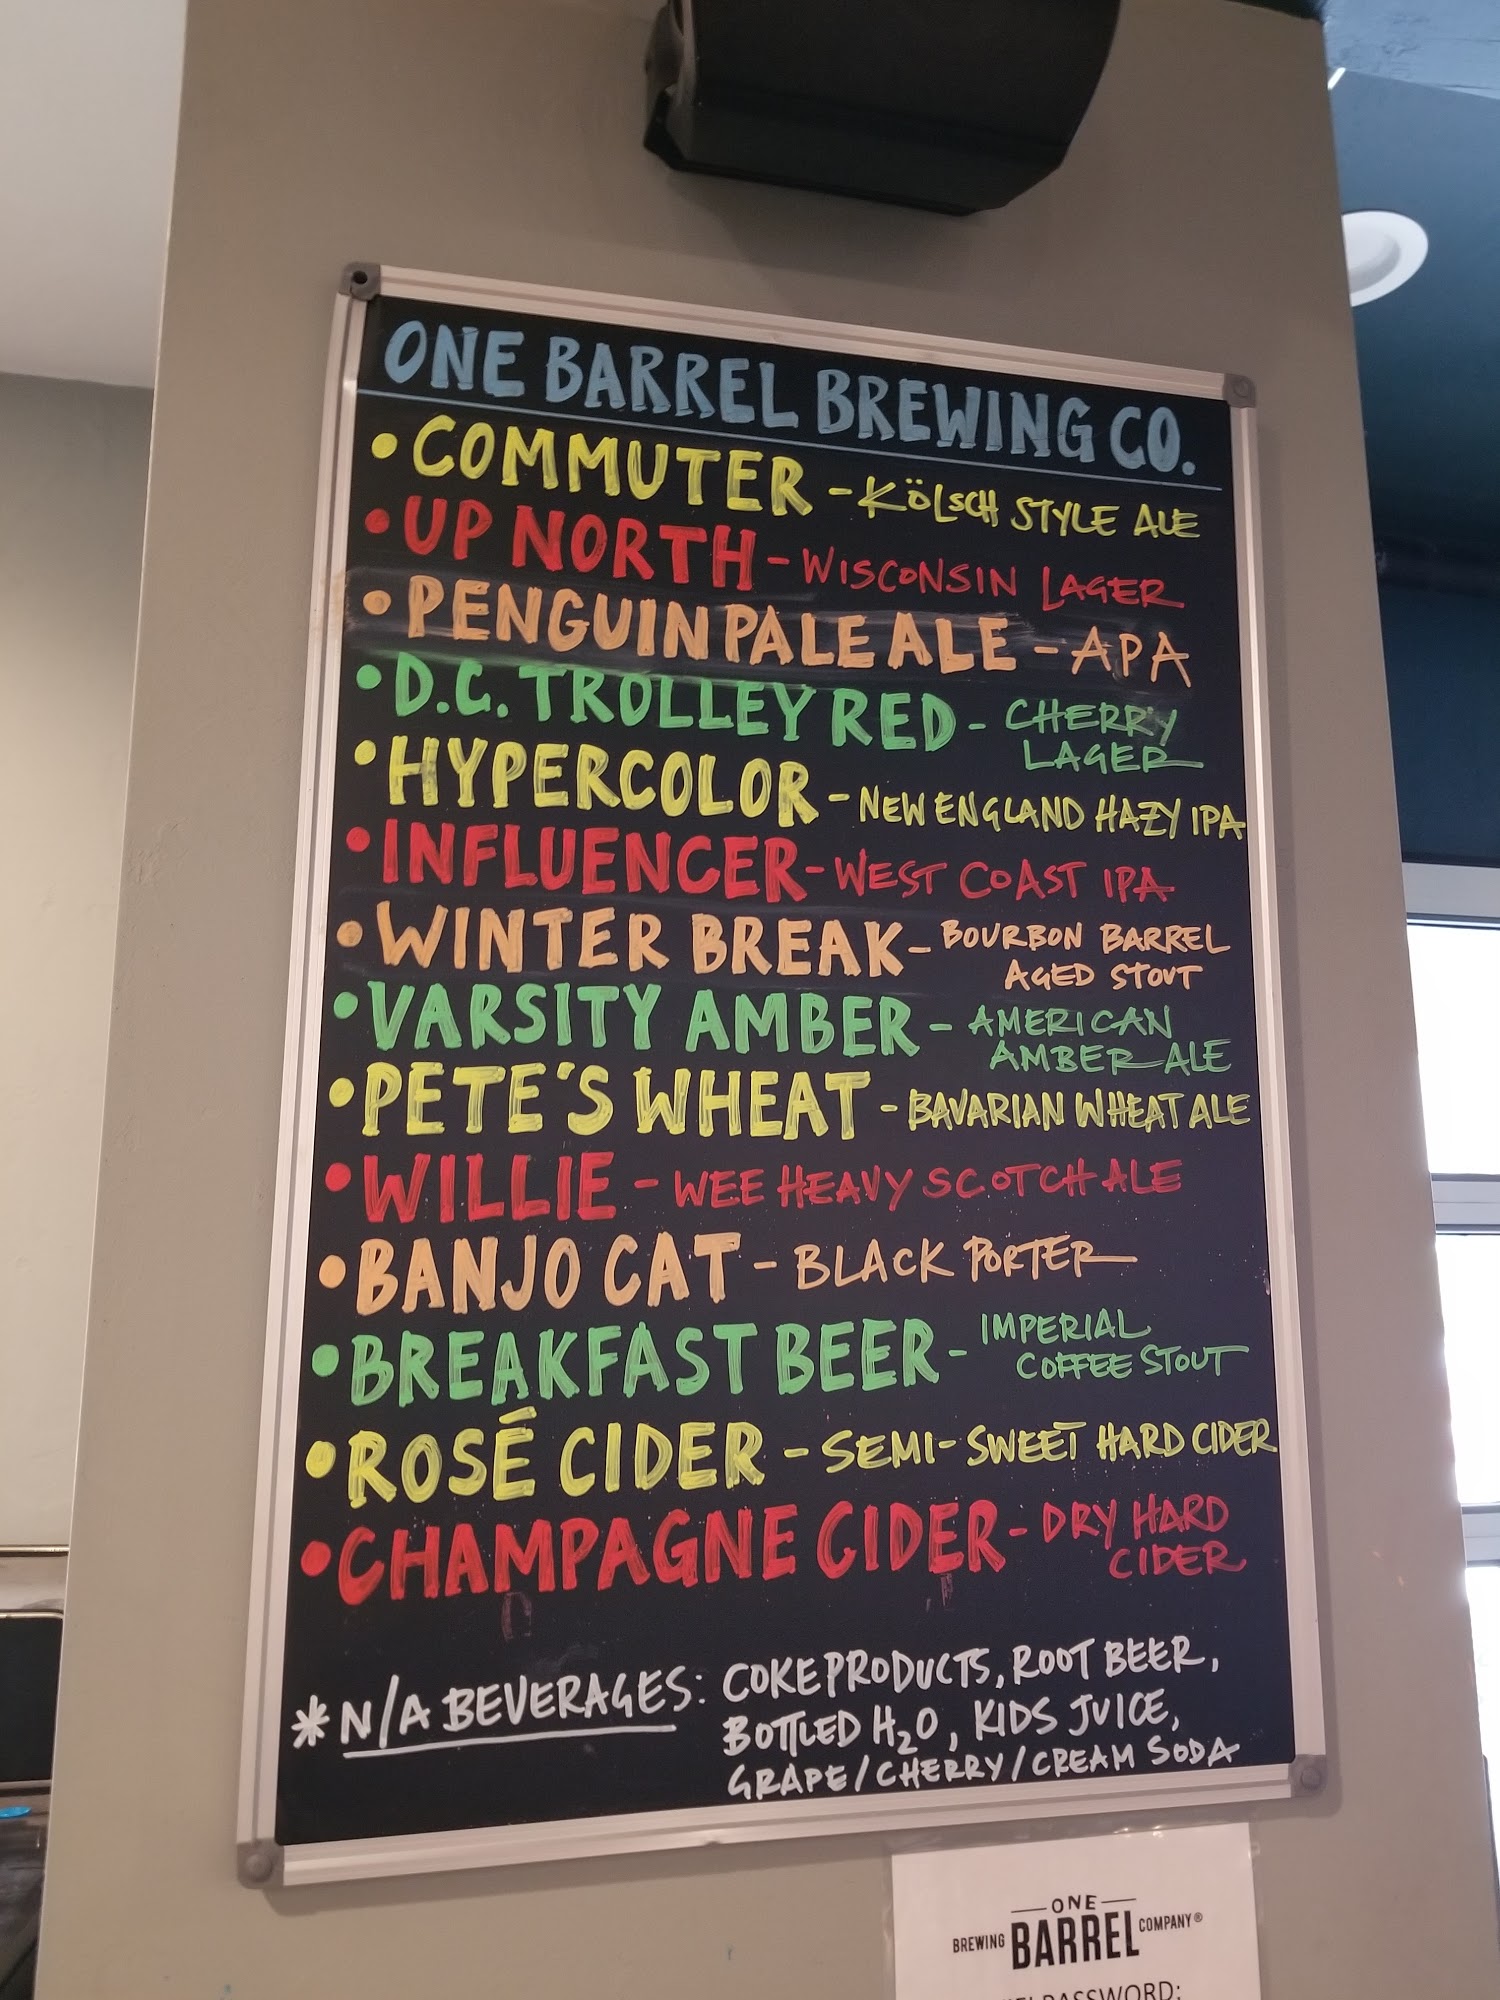 ONE BARREL BREWING CO.
• COMMUTER - KÖLSCH STYLE ALE
• UP NORTH - WISCONSIN LAGER
• PENGUIN PALE ALE - APA
• D.C. TROLLEY RED - CHERRY
LAGER
• HYPERCOLOR - NEW ENGLAND HAZY IPA
• INFLUENCER - WEST COAST IPA
• WINTER BREAK - BOURBON BARREL
AGED STOUT
• VARSITY AMBER - AMERICAN
AMBER ALE
• PETE'S WHEAT - BAVARIAN WHEAT ALE
• WILLIE - WEE HEAVY SCOTCH ALE
• BANJO CAT - BLACK PORTER
• BREAKFAST BEER - IMPERIAL
COFFEE STOUT
• ROSÉ CIDER - SEMI-SWEET HARD CIDER
• CHAMPAGNE CIDER - DRY HARD
CIDER
* N/A BEVERAGES: COKE PRODUCTS, ROOT BEER,
BOTTLED H₂O, KIDS JUICE,
GRAPE/CHERRY/CREAM SODA
ONE
BREWING BARREL COMPANY®
PASSWORD: